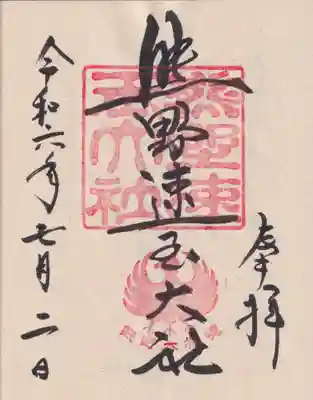 奉拝
熊野速玉大社
令和六年七月二日
熊野速玉大社